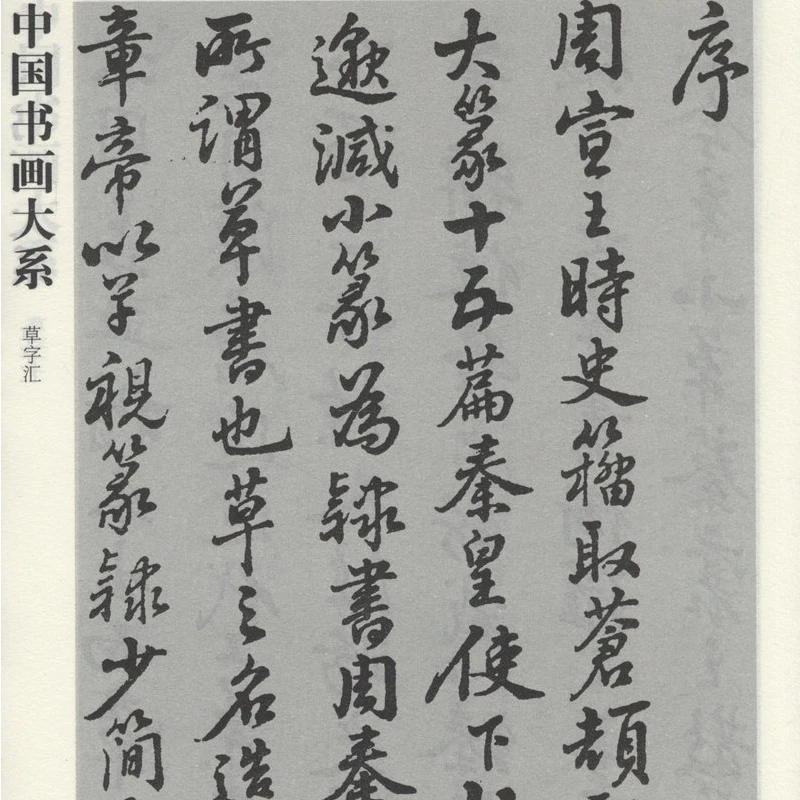 序
周宣王時史籀取蒼頡
大篆十五篇秦皇使下
邈減小篆為隸書周秦
所謂草書也草之名造
章帝以草視篆隸少簡
中国书画大系
草字汇